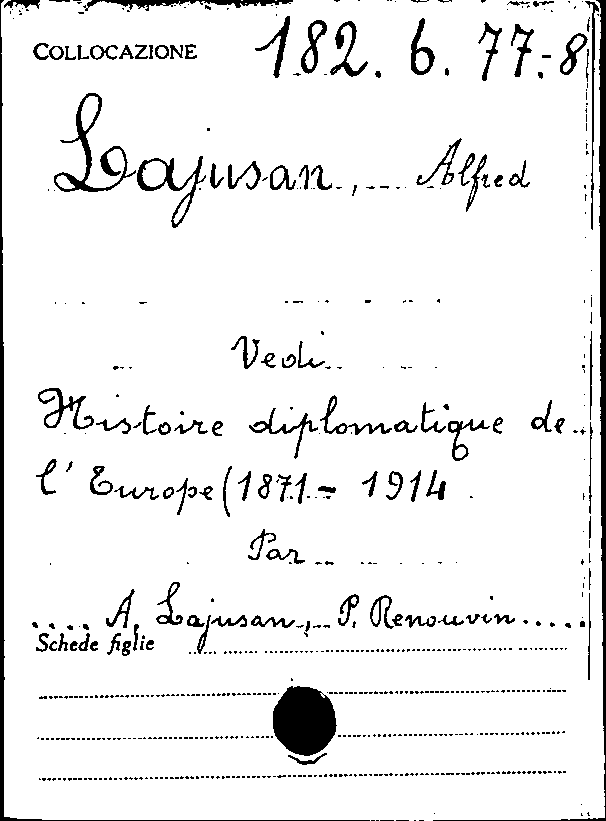 COLLOCAZIONE 182.6.77.-8
Lajusan, Alfred
Vedi
Histoire diplomatique de
l'Europe (1871 - 1914
Par
.... A. Lajusan, P. Renouvin.....
Schede figlie